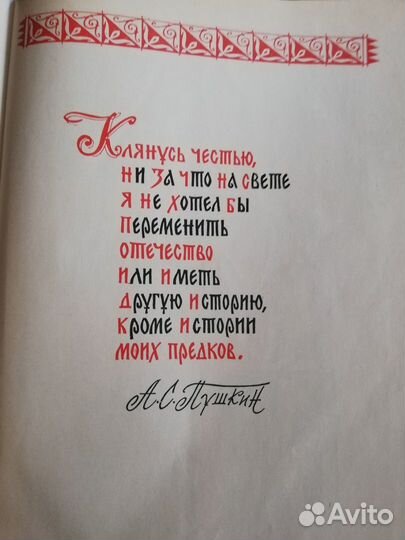 Клянусь честью,
ни за что на свете
я не хотел бы
переменить
отечество
или иметь
другую историю,
кроме истории
моих предков.
А.С.Пушкин
Avito